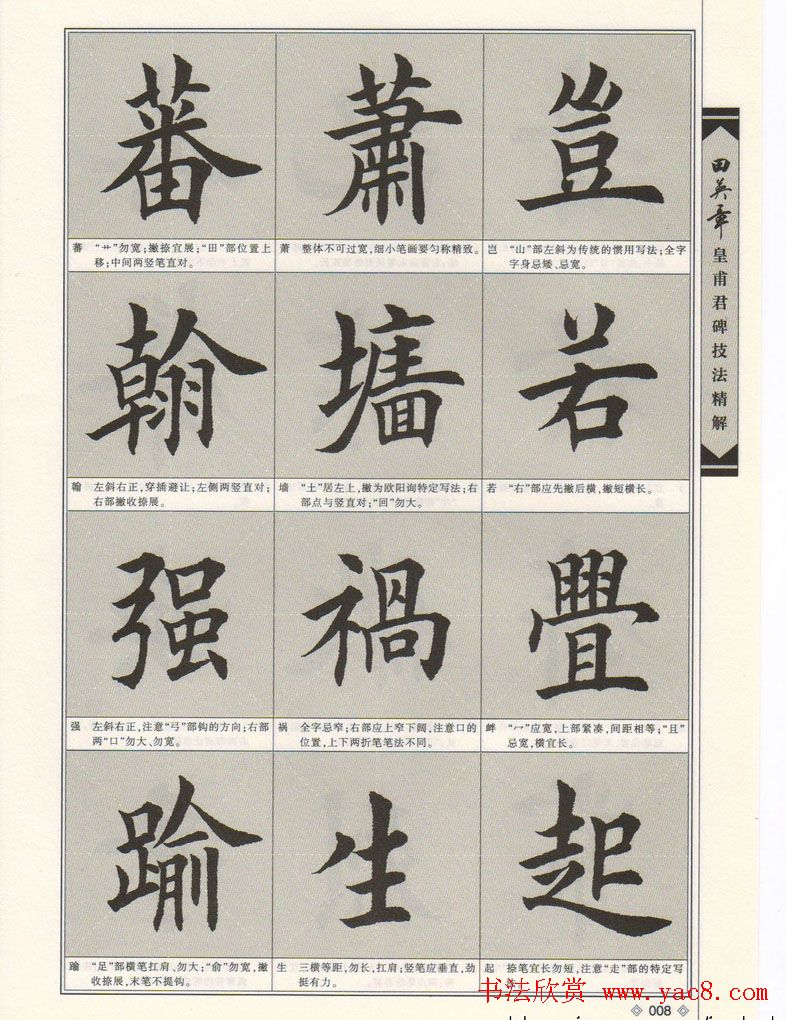 蕃 蕭 豈
蕃 “艹”勿宽;撇捺宜展;“田”部位置上
移;中间两竖笔直对。
萧 整体不可过宽,细小笔画要匀称精致。
岂 “山”部左斜为传统的惯用写法;全字
字身忌矮、忌宽。
翰 墙 若
翰 左斜右正,穿插避让;左侧两竖直对;
右部撇收捺展。
墙 “土”居左上,撇为欧阳询特定写法;右
部点与竖直对;“回”勿大。
若 “右”部应先撇后横,撇短横长。
强 禍 舋
强 左斜右正,注意“弓”部钩的方向;右部
两“口”勿大、勿宽。
祸 全字忌窄;右部应上窄下阔,注意口的
位置,上下两折笔笔法不同。
衅 “冖”应宽,上部紧凑,间距相等;“且”
忌宽,横宜长。
踰 生 起
踰 “足”部横笔扛肩、勿大;“俞”勿宽,撇
收捺展,末笔不提钩。
生 三横等距,勿长,扛肩;竖笔应垂直,劲
挺有力。
起 捺笔宜长勿短,注意“走”部的特定写
法。
田英章
皇甫君碑技法精解
书法欣赏 www.yac8.com
008